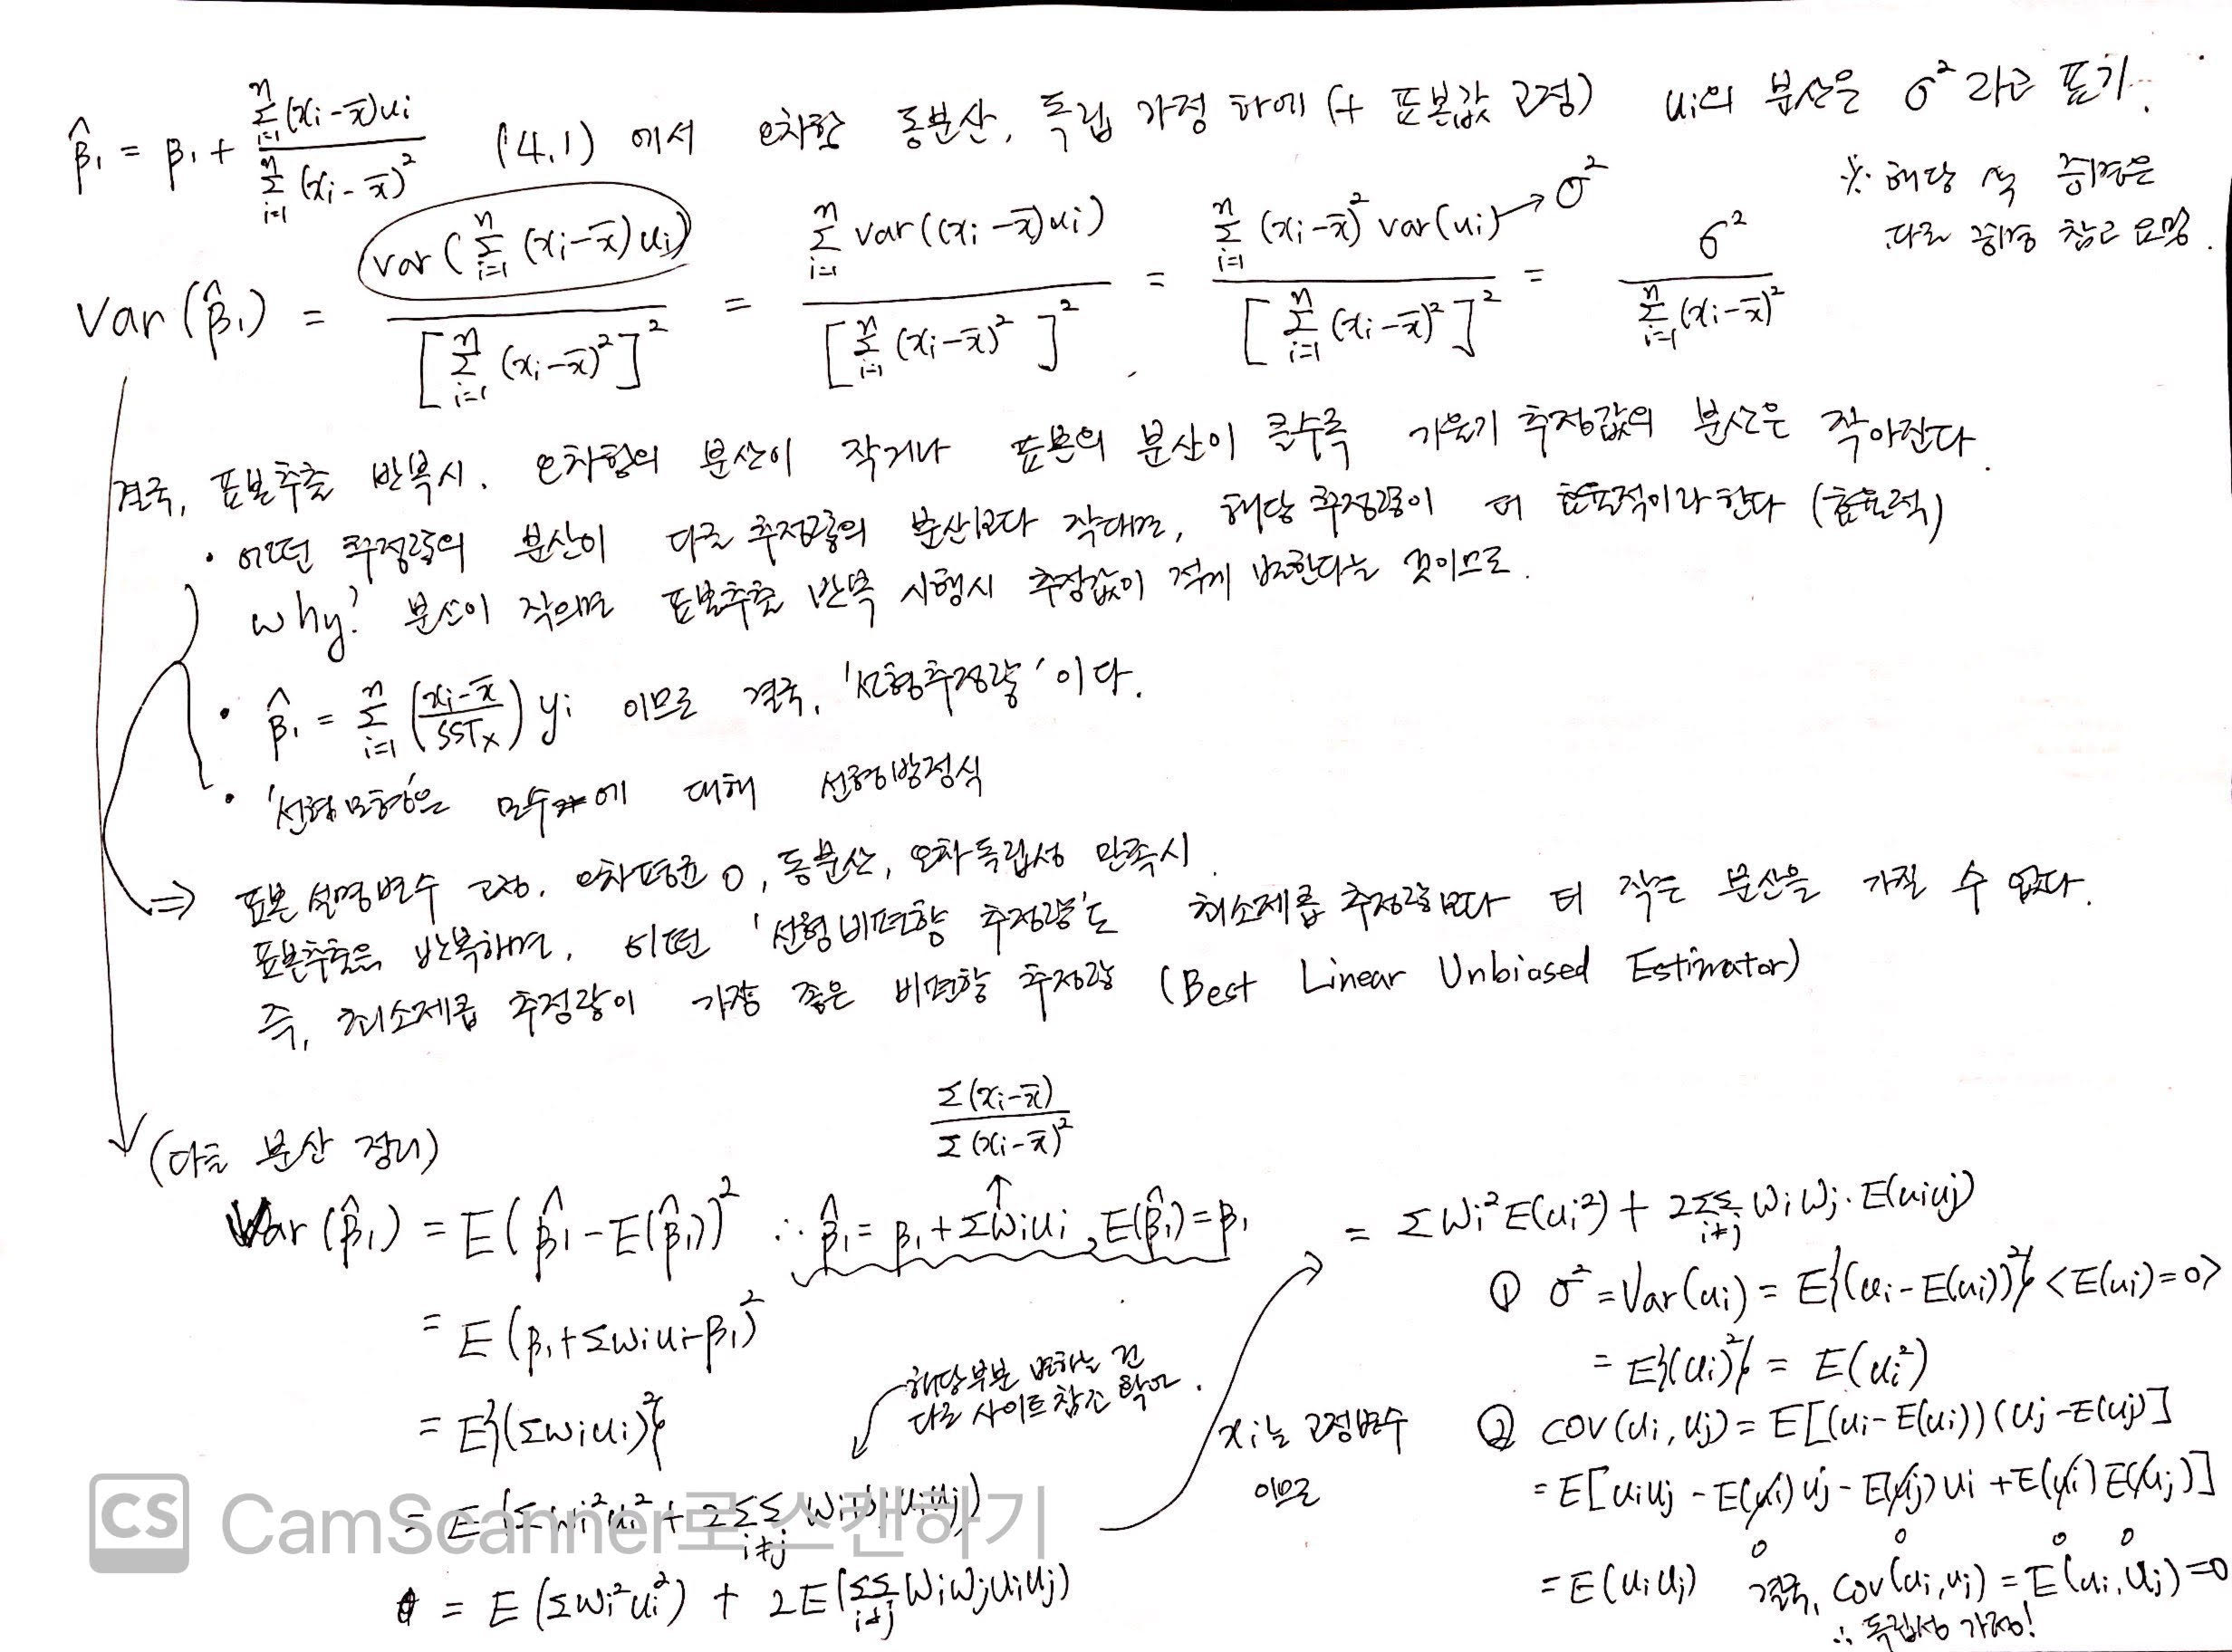 β̂₁ = β₁ + Σⁿᵢ₌₁(xᵢ-x̄)uᵢ / Σⁿᵢ₌₁(xᵢ-x̄)² (4.1) 에서 오차항 동분산, 독립 가정 하에 (+ 표본값 고정) uᵢ의 분산은 σ² 라고 표기.
※ 해당 식 증명은
다른 증명 참고 요망.
Var(β̂₁) = var(Σⁿᵢ₌₁(xᵢ-x̄)uᵢ) / [Σⁿᵢ₌₁(xᵢ-x̄)²]² = Σⁿᵢ₌₁ var((xᵢ-x̄)uᵢ) / [Σⁿᵢ₌₁(xᵢ-x̄)²]² = Σⁿᵢ₌₁(xᵢ-x̄)² var(uᵢ)→σ² / [Σⁿᵢ₌₁(xᵢ-x̄)²]² = σ² / Σⁿᵢ₌₁(xᵢ-x̄)²
결국, 표본추출 반복시, 오차항의 분산이 작거나 표본의 분산이 클수록 기울기 추정값의 분산은 작아진다.
• 어떤 추정량의 분산이 다른 추정량의 분산보다 작다면, 해당 추정량이 더 효율적이라 한다 (효율적)
why? 분산이 작으면 표본추출 반복 시행시 추정값이 적게 변한다는 것이므로.
• β̂₁ = Σⁿᵢ₌₁ ((xᵢ-x̄)/SSTₓ) yᵢ 이므로 결국, '선형추정량' 이다.
• '선형모형'은 모수에 대해 선형방정식
⇒ 표본 설명변수 고정, 오차평균 0, 동분산, 오차독립성 만족시
표본추출을 반복하면, 어떤 '선형비편향 추정량'도 최소제곱 추정량보다 더 작은 분산을 가질 수 없다.
즉, 최소제곱 추정량이 가장 좋은 비편향 추정량 (Best Linear Unbiased Estimator)
(다른 분산 정리)
Σ(xᵢ-x̄) / Σ(xᵢ-x̄)²
Var(β̂₁) = E(β̂₁-E(β̂₁))² ∴ β̂₁ = β₁+Σwᵢuᵢ, E(β̂₁)=β₁
= E(β₁+Σwᵢuᵢ-β₁)²
= E{(Σwᵢuᵢ)²}
해당부분 변하는 건
다른 사이트 참조
= E(Σwᵢ²uᵢ² + 2ΣΣᵢ≠ⱼ wᵢwⱼuᵢuⱼ)
= E(Σwᵢ²uᵢ²) + 2E(ΣΣᵢ≠ⱼ wᵢwⱼuᵢuⱼ)
xᵢ는 고정변수
이므로
= Σwᵢ²E(uᵢ²) + 2ΣΣᵢ≠ⱼ wᵢwⱼ·E(uᵢuⱼ)
① σ² = Var(uᵢ) = E{(uᵢ-E(uᵢ))²} <E(uᵢ)=0>
= E{(uᵢ)²} = E(uᵢ²)
② cov(uᵢ,uⱼ) = E[(uᵢ-E(uᵢ))(uⱼ-E(uⱼ)]
= E[uᵢuⱼ - E(uᵢ)uⱼ - E(uⱼ)uᵢ + E(uᵢ)E(uⱼ)]
0 0 0 0
= E(uᵢuⱼ) 결국, cov(uᵢ,uⱼ) = E(uᵢ,uⱼ)=0
∴ 독립성 가정!
CS CamScanner로 스캔하기